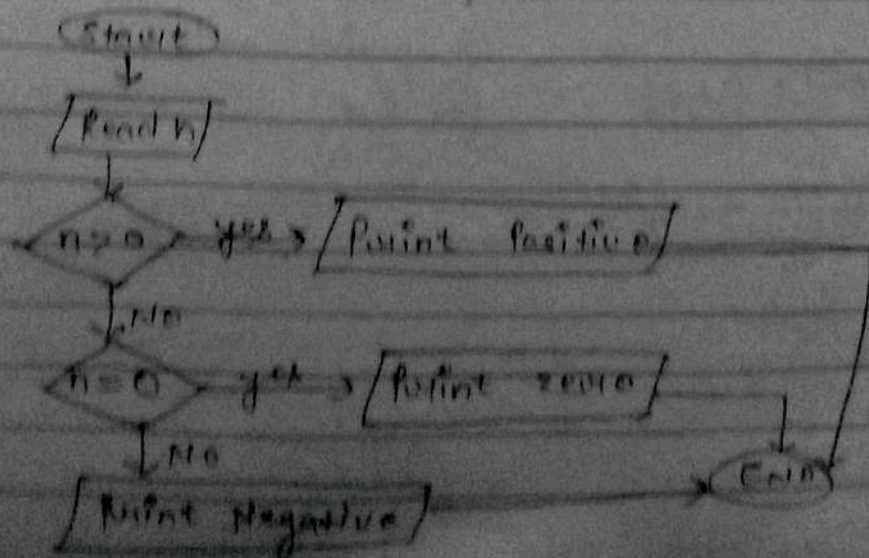 Start
Read n
n>0 yes Print Positive
No
n=0 yes Print zero
No
END
Print Negative